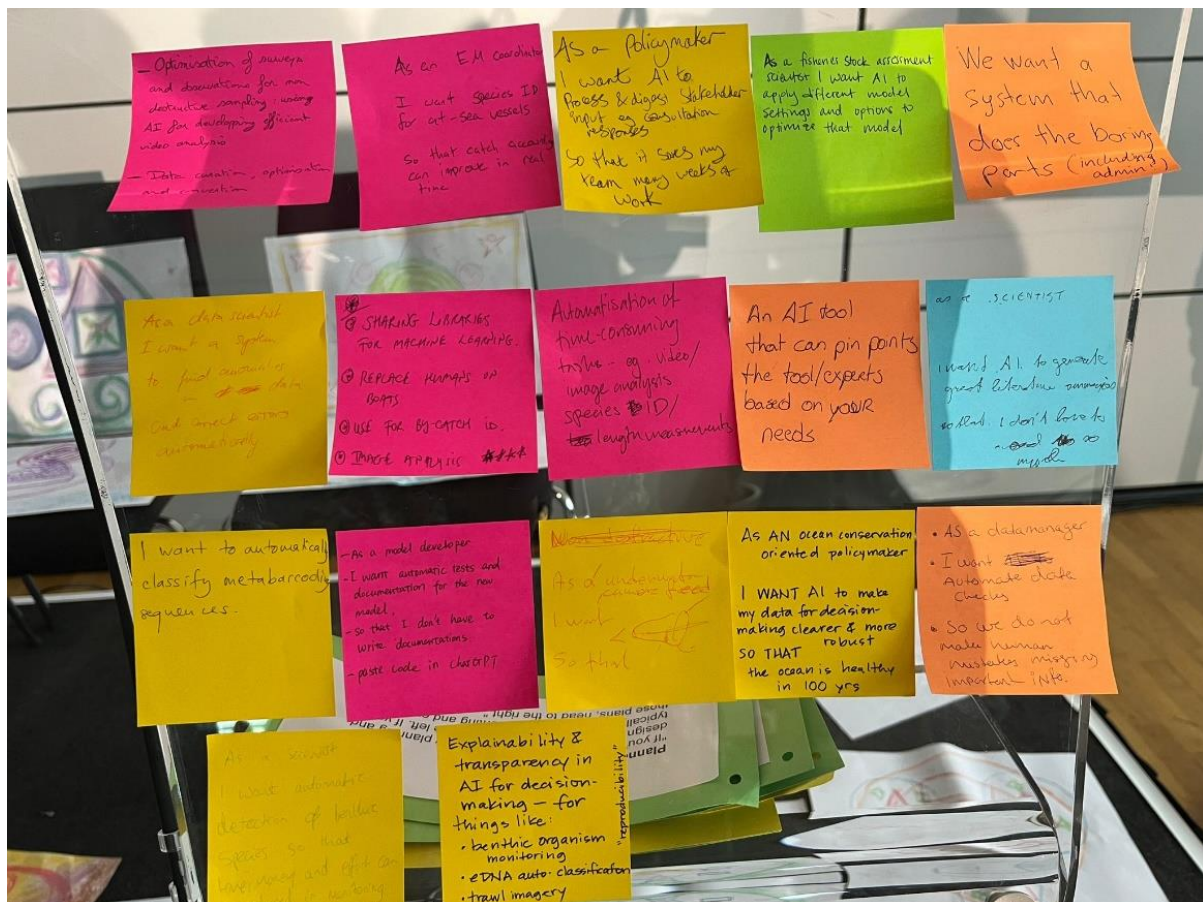 - Optimisation of surveys
and observations for non
destructive sampling, using
AI for developing efficient
video analysis
- Data curation, optimisation
and convertion
As an EM coordinator
I want Species ID
for at-sea vessels
So that catch accuracy
can improve in real
time
As a Policymaker
I want AI to
Process & digest stakeholder
input eg consultation
responses
So that it saves my
team many weeks of
work
As a fisheries stock assessment
scientist I want AI to
apply different model
settings and options to
optimize that model
We want a
system that
does the boring
parts (including
admin)
As a data scientist
I want a system
to find anomalies
in data
and correct errors
automatically
SHARING LIBRARIES
FOR MACHINE LEARNING.
REPLACE HUMANS ON
BOATS
USE FOR BY-CATCH ID.
IMAGE ANALYSIS
Automatisation of
time-consuming
tasks - eg. video/
image analysis
species ID/
length measurements
An AI tool
that can pin points
the tool/experts
based on your
needs
as a SCIENTIST
I want A.I. to generate
great literature summaries
so that I don't have to
read so
much
I want to automatically
classify metabarcoding
sequences.
- As a model developer
- I want automatic tests and
documentation for the new
model.
- so that I don't have to
write documentations.
- paste code in chatGPT
Non destructive
As a underwater
I want
So that
As AN ocean conservation
oriented policymaker
I WANT AI to make
my data for decision-
making clearer & more
robust
SO THAT
the ocean is healthy
in 100 yrs
• As a datamanager
• I want
Automate data
checks
• So we do not
make human
mistakes missing
important info.
As a scientist
I want automatic
detection of benthic
species so that
money and effort can
monitoring
Explainability &
transparency in
AI for decision-
making - for
things like:
• benthic organism
monitoring
• eDNA auto-classification
• trawl imagery
"reproducibility"